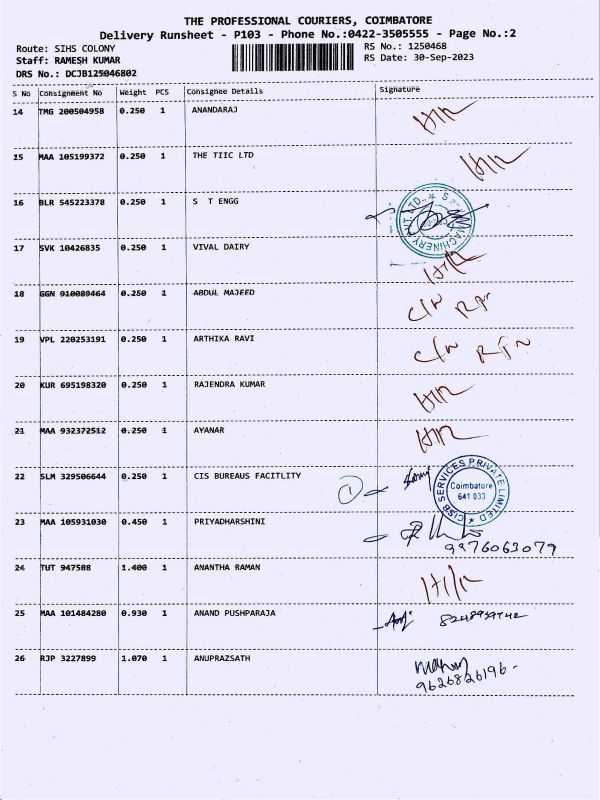 THE PROFESSIONAL COURIERS, COIMBATORE
Delivery Runsheet - P103 - Phone No.:0422-3505555 - Page No.:2
Route: SIHS COLONY
RS No.: 1250468
Staff: RAMESH KUMAR
RS Date: 30-Sep-2023
DRS No.: DCJB125046802
S No Consignment No Weight PCS Consignee Details Signature
14 TMG 200504958 0.250 1 ANANDARAJ
15 MAA 105199372 0.250 1 THE TIIC LTD
16 BLR 545223378 0.250 1 S T ENGG
17 SVK 10426835 0.250 1 VIVAL DAIRY
18 GGN 910089464 0.250 1 ABDUL MAJEED
19 VPL 220253191 0.250 1 ARTHIKA RAVI
20 KUR 695198320 0.250 1 RAJENDRA KUMAR
21 MAA 932372512 0.250 1 AYANAR
22 SLM 329506644 0.250 1 CIS BUREAUS FACITLITY
1
CISB SERVICES PRIVATE LIMITED
Coimbatore
641 033
23 MAA 105931030 0.450 1 PRIYADHARSHINI
9976063079
24 TUT 947588 1.400 1 ANANTHA RAMAN
25 MAA 101484280 0.930 1 ANAND PUSHPARAJA
26 RJP 3227899 1.070 1 ANUPRAZSATH
9626826196